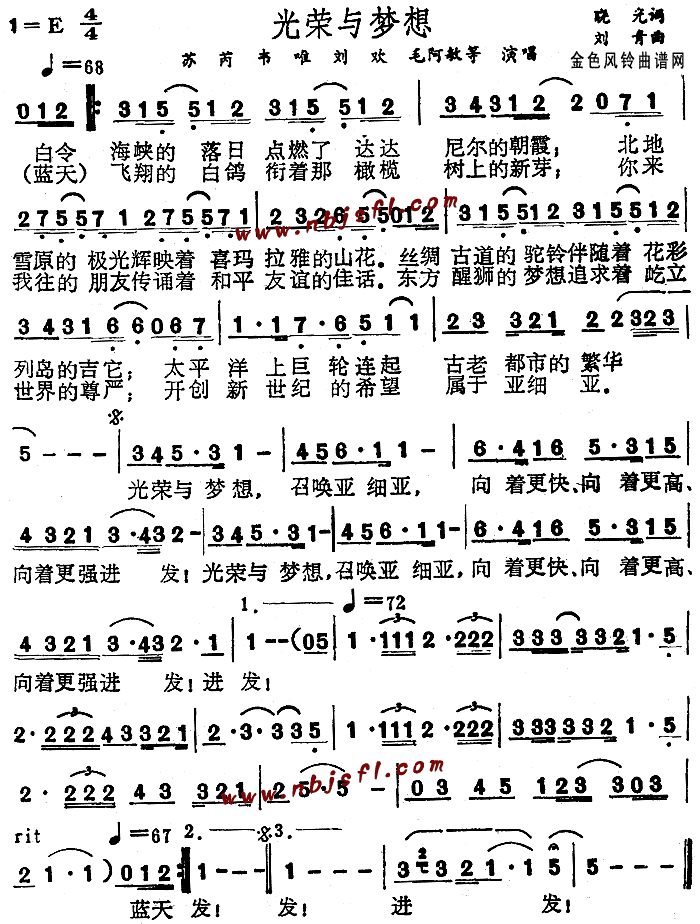 光荣与梦想
1=E 4/4
晓光词
刘青曲
♩=68
苏芮 韦唯 刘欢 毛阿敏等 演唱
金色风铃曲谱网
012 315 512 315 512 34312 2012
白令 海峡的 落日 点燃了 达达 尼尔的朝霞; 北地
(蓝天) 飞翔的 白鸽 衔着那 橄榄 树上的新芽; 你来
www.nbjsfl.com
雪原的 极光辉映着 喜玛 拉雅的山花. 丝绸 古道的 驼铃伴随着 花彩
我往的 朋友传诵着 和平 友谊的佳话. 东方 醒狮的 梦想追求着 屹立
34316 6067 1·17·651 23 321 22323
列岛的吉它; 太平 洋 上巨 轮连起 古老 都市的 繁华
世界的尊严; 开创 新 世纪 的希望 属于 亚细 亚.
5--- 345·31- 456·11- 6·416 5·315
光荣与 梦想, 召唤亚 细亚, 向 着更快、向 着更高、
4321 3·432- 345·31- 456·11- 6·416 5·315
向着更强进 发! 光荣与 梦想, 召唤亚 细亚, 向 着更快、向 着更高、
1. ♩=72
4321 3·432·1 1--(05 1·1112·222 333 3321·5
向着更强进 发! 进 发!
2·22243321 2·3·335 1·1112·222 3333321·5
2·222 43 321 25·5- 03 45 123 303
www.nbjsfl.com
rit ♩=67 2. 3.
21·1) 012 1--- 1---
蓝天 发! 发! 进 发!